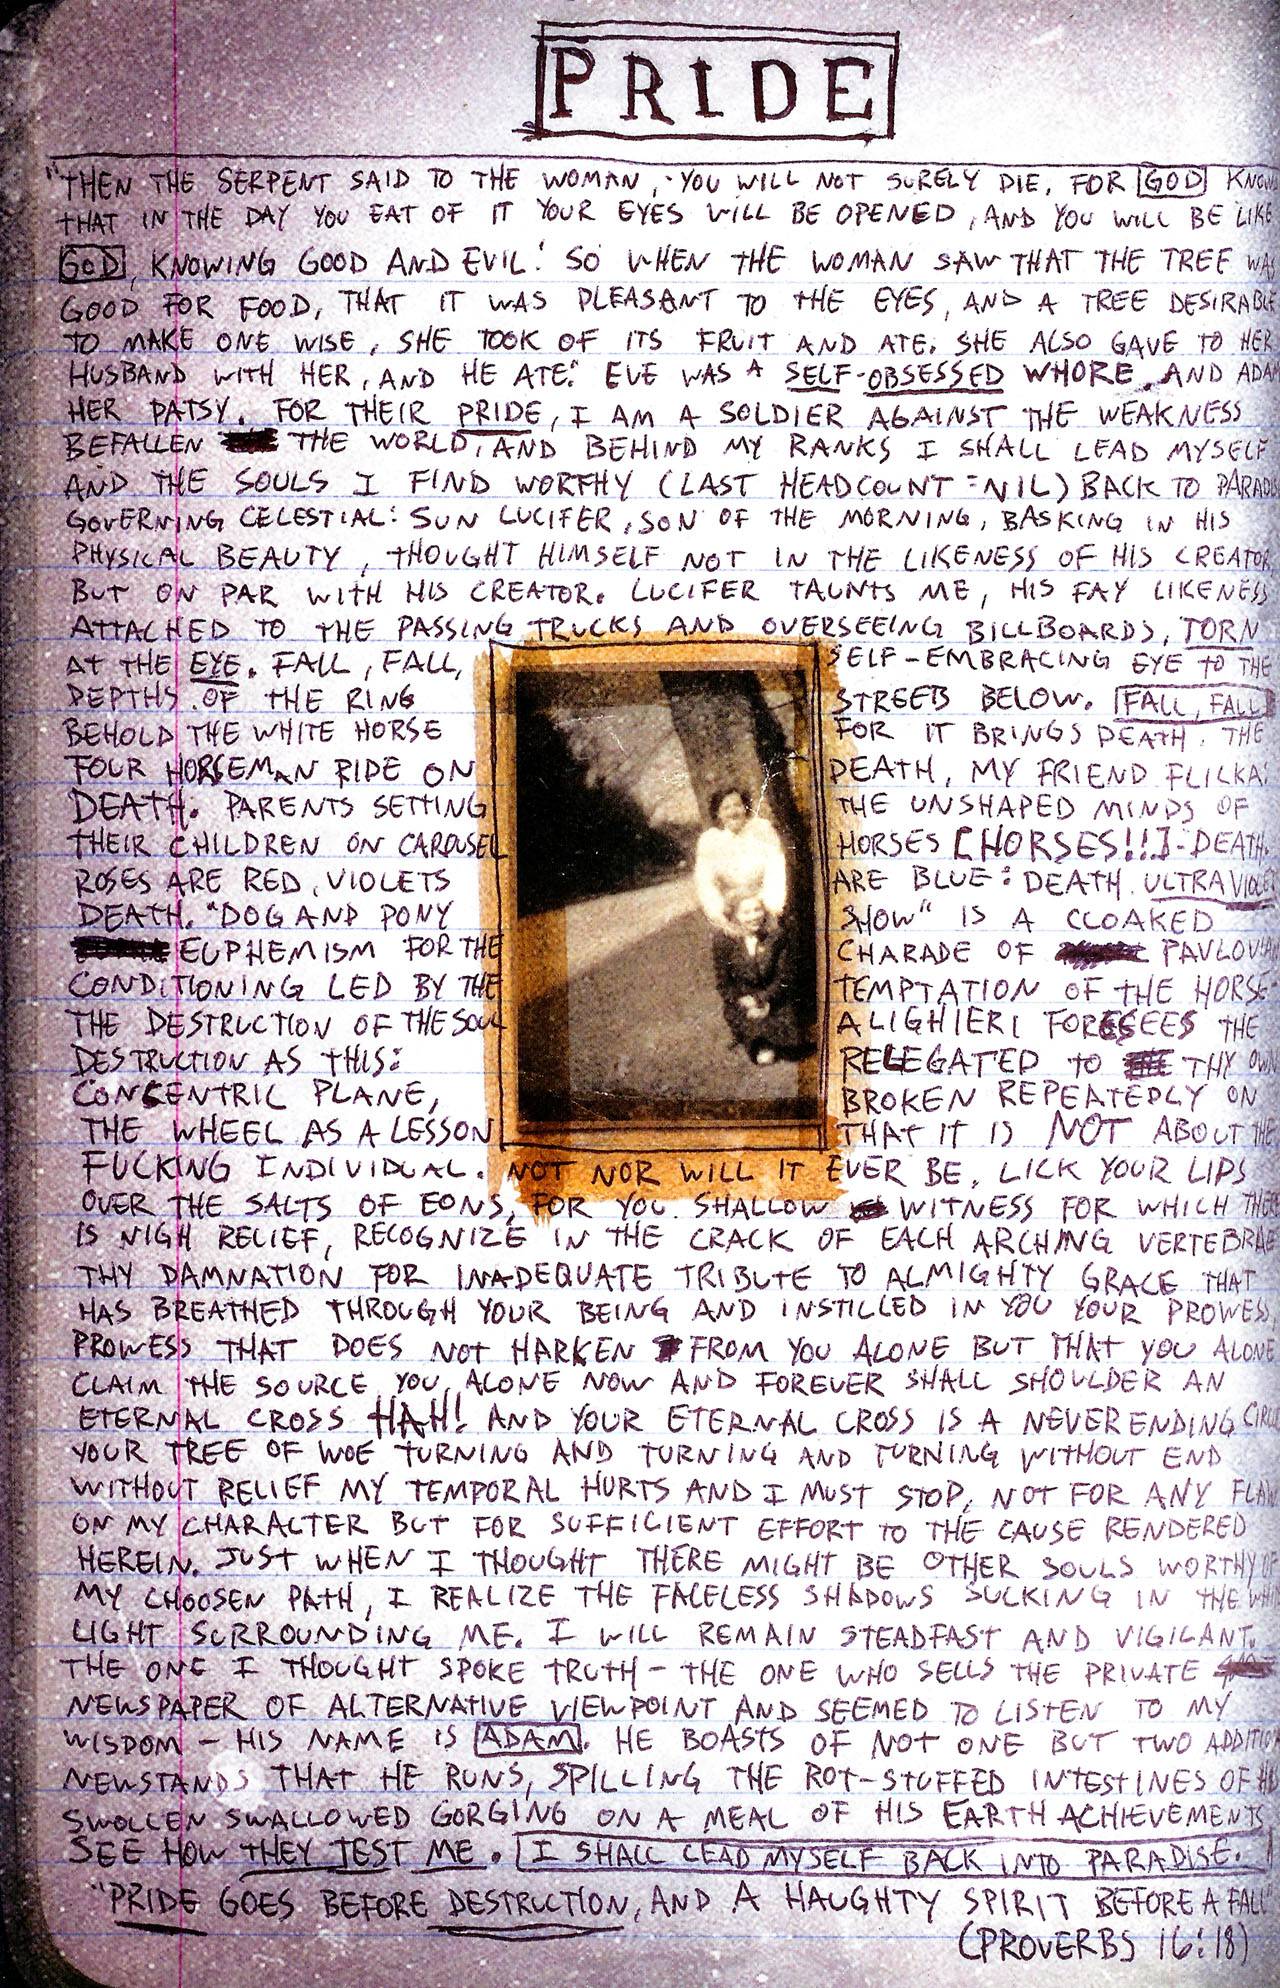 PRIDE
"THEN THE SERPENT SAID TO THE WOMAN, 'YOU WILL NOT SURELY DIE. FOR GOD KNOWS
THAT IN THE DAY YOU EAT OF IT YOUR EYES WILL BE OPENED, AND YOU WILL BE LIKE
GOD, KNOWING GOOD AND EVIL.' SO WHEN THE WOMAN SAW THAT THE TREE WAS
GOOD FOR FOOD, THAT IT WAS PLEASANT TO THE EYES, AND A TREE DESIRABLE
TO MAKE ONE WISE, SHE TOOK OF ITS FRUIT AND ATE. SHE ALSO GAVE TO HER
HUSBAND WITH HER, AND HE ATE." EVE WAS A SELF-OBSESSED WHORE. AND ADAM
HER PATSY. FOR THEIR PRIDE, I AM A SOLDIER AGAINST THE WEAKNESS
BEFALLEN THE WORLD, AND BEHIND MY RANKS I SHALL LEAD MYSELF
AND THE SOULS I FIND WORTHY (LAST HEADCOUNT = NIL) BACK TO PARADISE
GOVERNING CELESTIAL: SUN LUCIFER, SON OF THE MORNING, BASKING IN HIS
PHYSICAL BEAUTY, THOUGHT HIMSELF NOT IN THE LIKENESS OF HIS CREATOR,
BUT ON PAR WITH HIS CREATOR. LUCIFER TAUNTS ME, HIS FAY LIKENESS
ATTACHED TO THE PASSING TRUCKS AND OVERSEEING BILLBOARDS, TORN
AT THE EYE. FALL, FALL, SELF-EMBRACING EYE TO THE
DEPTHS OF THE RING STREETS BELOW. FALL, FALL
BEHOLD THE WHITE HORSE FOR IT BRINGS DEATH. THE
FOUR HORSEMAN RIDE ON DEATH, MY FRIEND FLICKA:
DEATH. PARENTS SETTING THE UNSHAPED MINDS OF
THEIR CHILDREN ON CAROUSEL HORSES [HORSES!!!]-DEATH.
ROSES ARE RED, VIOLETS ARE BLUE: DEATH. ULTRAVIOLET
DEATH. "DOG AND PONY SHOW" IS A CLOAKED
EUPHEMISM FOR THE CHARADE OF PAVLOVIAN
CONDITIONING LED BY THE TEMPTATION OF THE HORSE-
THE DESTRUCTION OF THE SOUL ALIGHIERI FORESEES THE
DESTRUCTION AS THIS: RELEGATED TO THY OWN
CONCENTRIC PLANE, BROKEN REPEATEDLY ON
THE WHEEL AS A LESSON THAT IT IS NOT ABOUT THE
FUCKING INDIVIDUAL. NOT NOR WILL IT EVER BE. LICK YOUR LIPS
OVER THE SALTS OF EONS, FOR YOU SHALLOW WITNESS FOR WHICH THERE
IS NIGH RELIEF, RECOGNIZE IN THE CRACK OF EACH ARCHING VERTEBRAE
THY DAMNATION FOR INADEQUATE TRIBUTE TO ALMIGHTY GRACE THAT
HAS BREATHED THROUGH YOUR BEING AND INSTILLED IN YOU YOUR PROWESS,
PROWESS THAT DOES NOT HARKEN FROM YOU ALONE BUT THAT YOU ALONE
CLAIM THE SOURCE YOU ALONE NOW AND FOREVER SHALL SHOULDER AN
ETERNAL CROSS HAH! AND YOUR ETERNAL CROSS IS A NEVER ENDING CIRCLE
YOUR TREE OF WOE TURNING AND TURNING AND TURNING WITHOUT END
WITHOUT RELIEF MY TEMPORAL HURTS AND I MUST STOP, NOT FOR ANY FLAW
ON MY CHARACTER BUT FOR SUFFICIENT EFFORT TO THE CAUSE RENDERED
HEREIN. JUST WHEN I THOUGHT THERE MIGHT BE OTHER SOULS WORTHY OF
MY CHOOSEN PATH, I REALIZE THE FACELESS SHADOWS SUCKING IN THE WHITE
LIGHT SURROUNDING ME. I WILL REMAIN STEADFAST AND VIGILANT.
THE ONE I THOUGHT SPOKE TRUTH - THE ONE WHO SELLS THE PRIVATE
NEWSPAPER OF ALTERNATIVE VIEWPOINT AND SEEMED TO LISTEN TO MY
WISDOM - HIS NAME IS ADAM. HE BOASTS OF NOT ONE BUT TWO ADDITION
NEWSTANDS THAT HE RUNS, SPILLING THE ROT-STUFFED INTESTINES OF HIS
SWOLLEN SWALLOWED GORGING ON A MEAL OF HIS EARTH ACHIEVEMENTS
SEE HOW THEY TEST ME. I SHALL LEAD MYSELF BACK INTO PARADISE.
"PRIDE GOES BEFORE DESTRUCTION, AND A HAUGHTY SPIRIT BEFORE A FALL"
(PROVERBS 16:18)